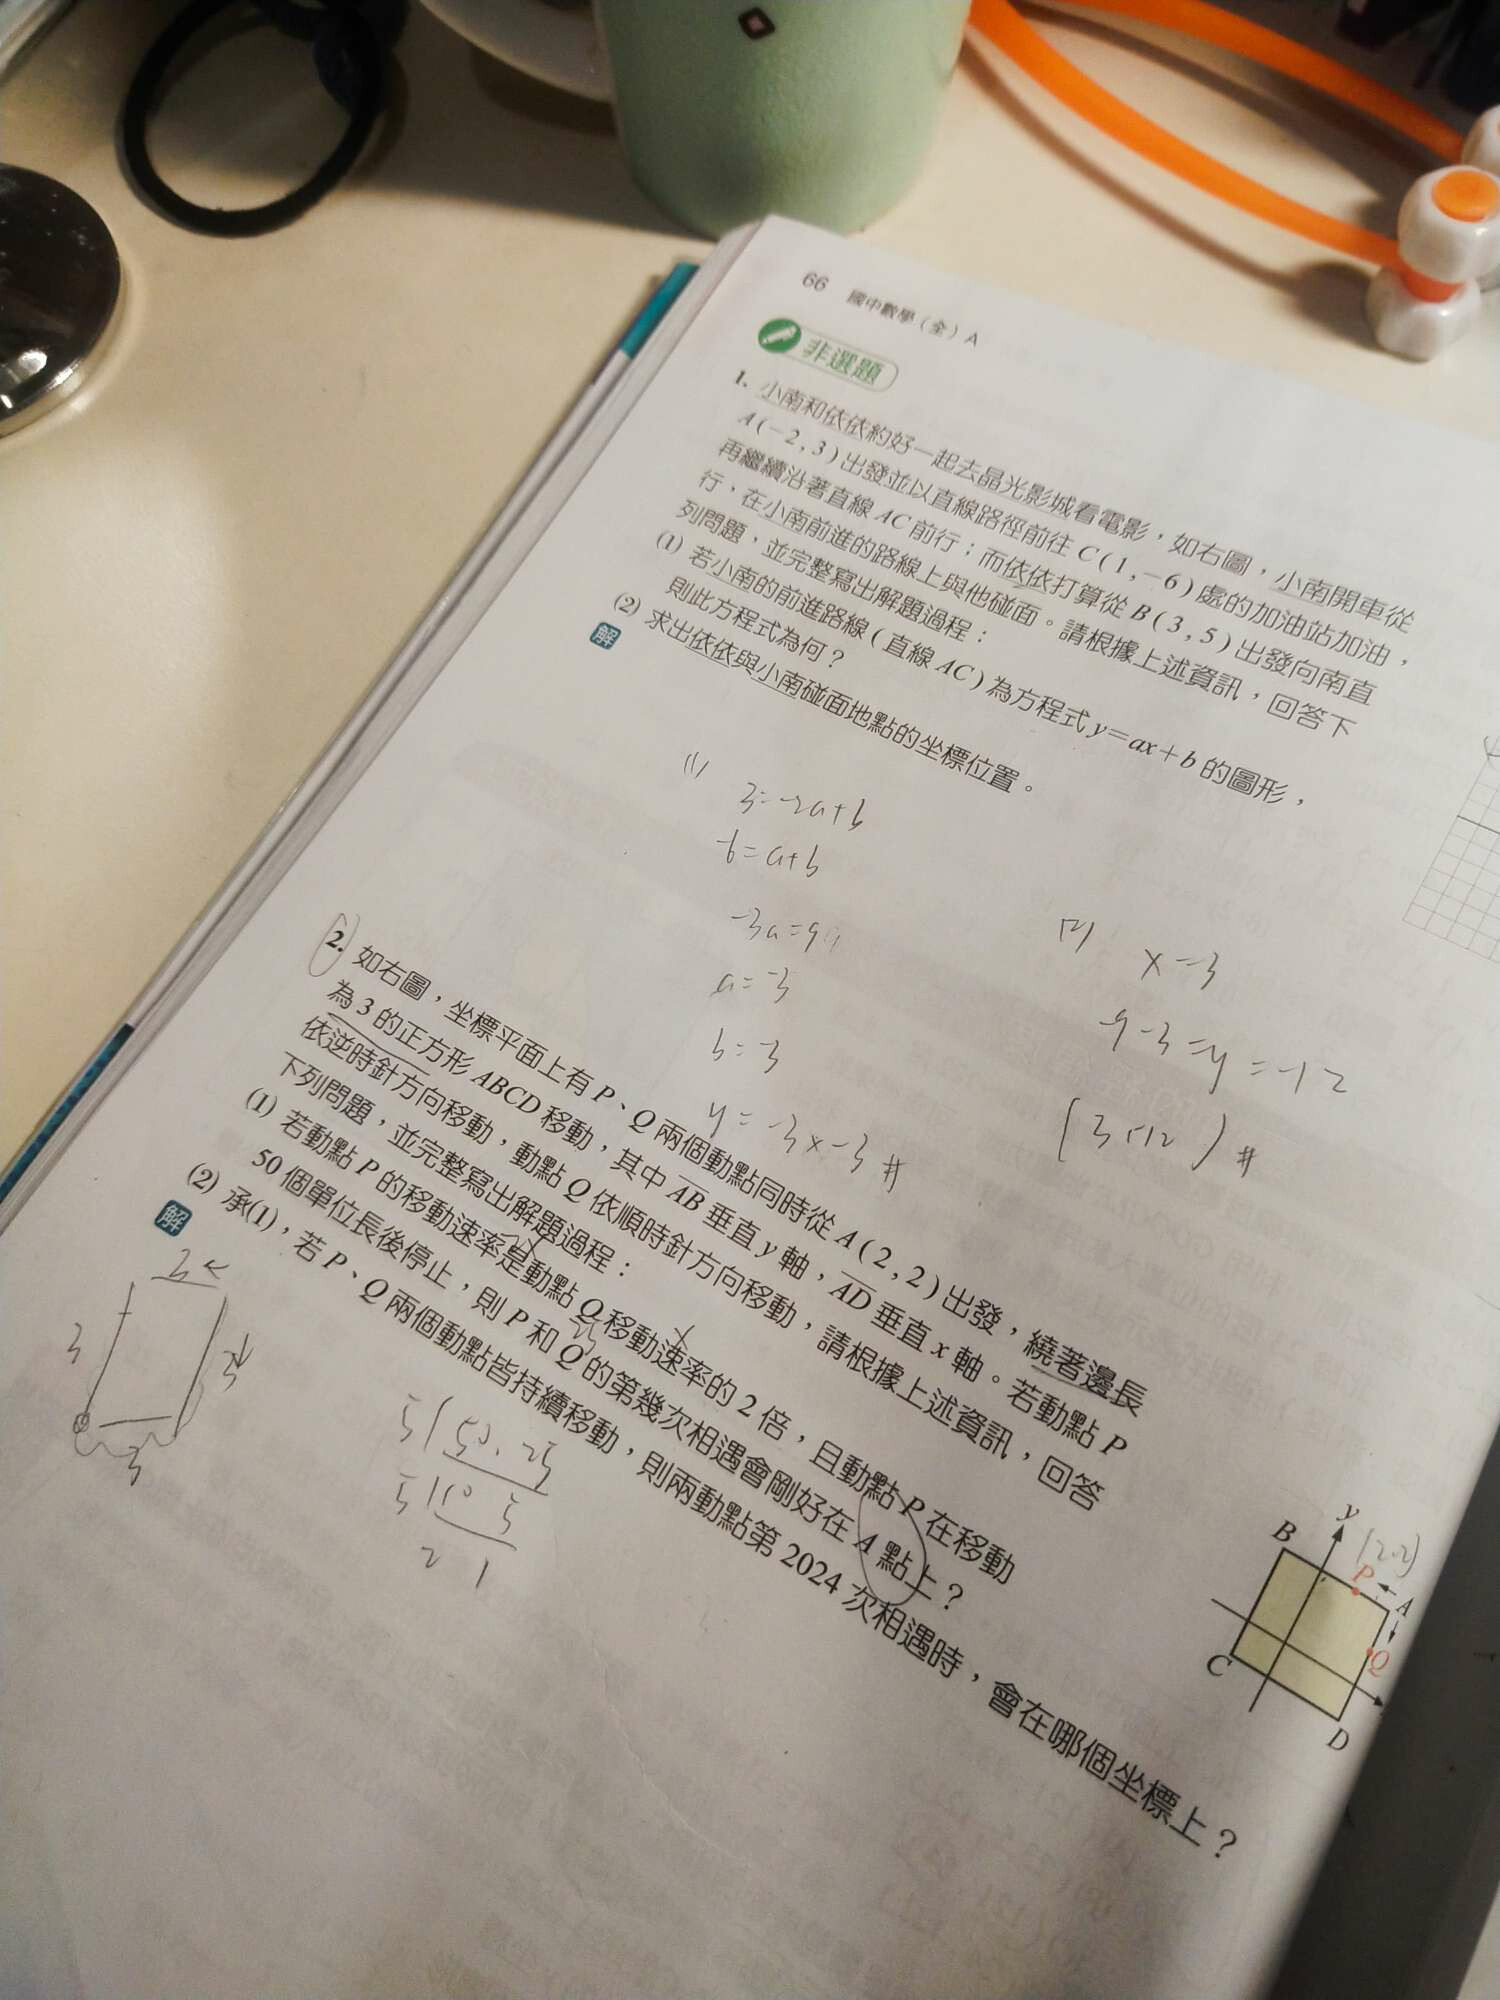 66 國中數學(全)A
非選題
1. 小南和依依約好一起去晶光影城看電影,如右圖,小南開車從
A(-2,3)出發並以直線路徑前往C(1,-6)處的加油站加油,
再繼續沿著直線AC前行;而依依打算從B(3,5)出發向南直
行,在小南前進的路線上與他碰面。請根據上述資訊,回答下
列問題,並完整寫出解題過程:
(1) 若小南的前進路線(直線AC)為方程式y=ax+b的圖形,
則此方程式為何?
(2) 求出依依與小南碰面地點的坐標位置。
解
(1)
3=-2a+b
-6=a+b
-3a=9
a=-3
b=-3
y=-3x-3#
(2)
x=3
-9-3=y=-12
(3,-12)#
2. 如右圖,坐標平面上有P、Q兩個動點同時從A(2,2)出發,繞著邊長
為3的正方形ABCD移動,其中AB垂直y軸,AD垂直x軸。若動點P
依逆時針方向移動,動點Q依順時針方向移動,請根據上述資訊,回答
下列問題,並完整寫出解題過程:
(1) 若動點P的移動速率是動點Q移動速率的2倍,且動點P在移動
50個單位長後停止,則P和Q的第幾次相遇會剛好在A點上?
(2) 承(1),若P、Q兩個動點皆持續移動,則兩動點第2024次相遇時,會在哪個坐標上?
解
2x
x
3
3
3
5 50 25
5 10 5
2 1
y
B
(2,2)
P
A
Q
C
D